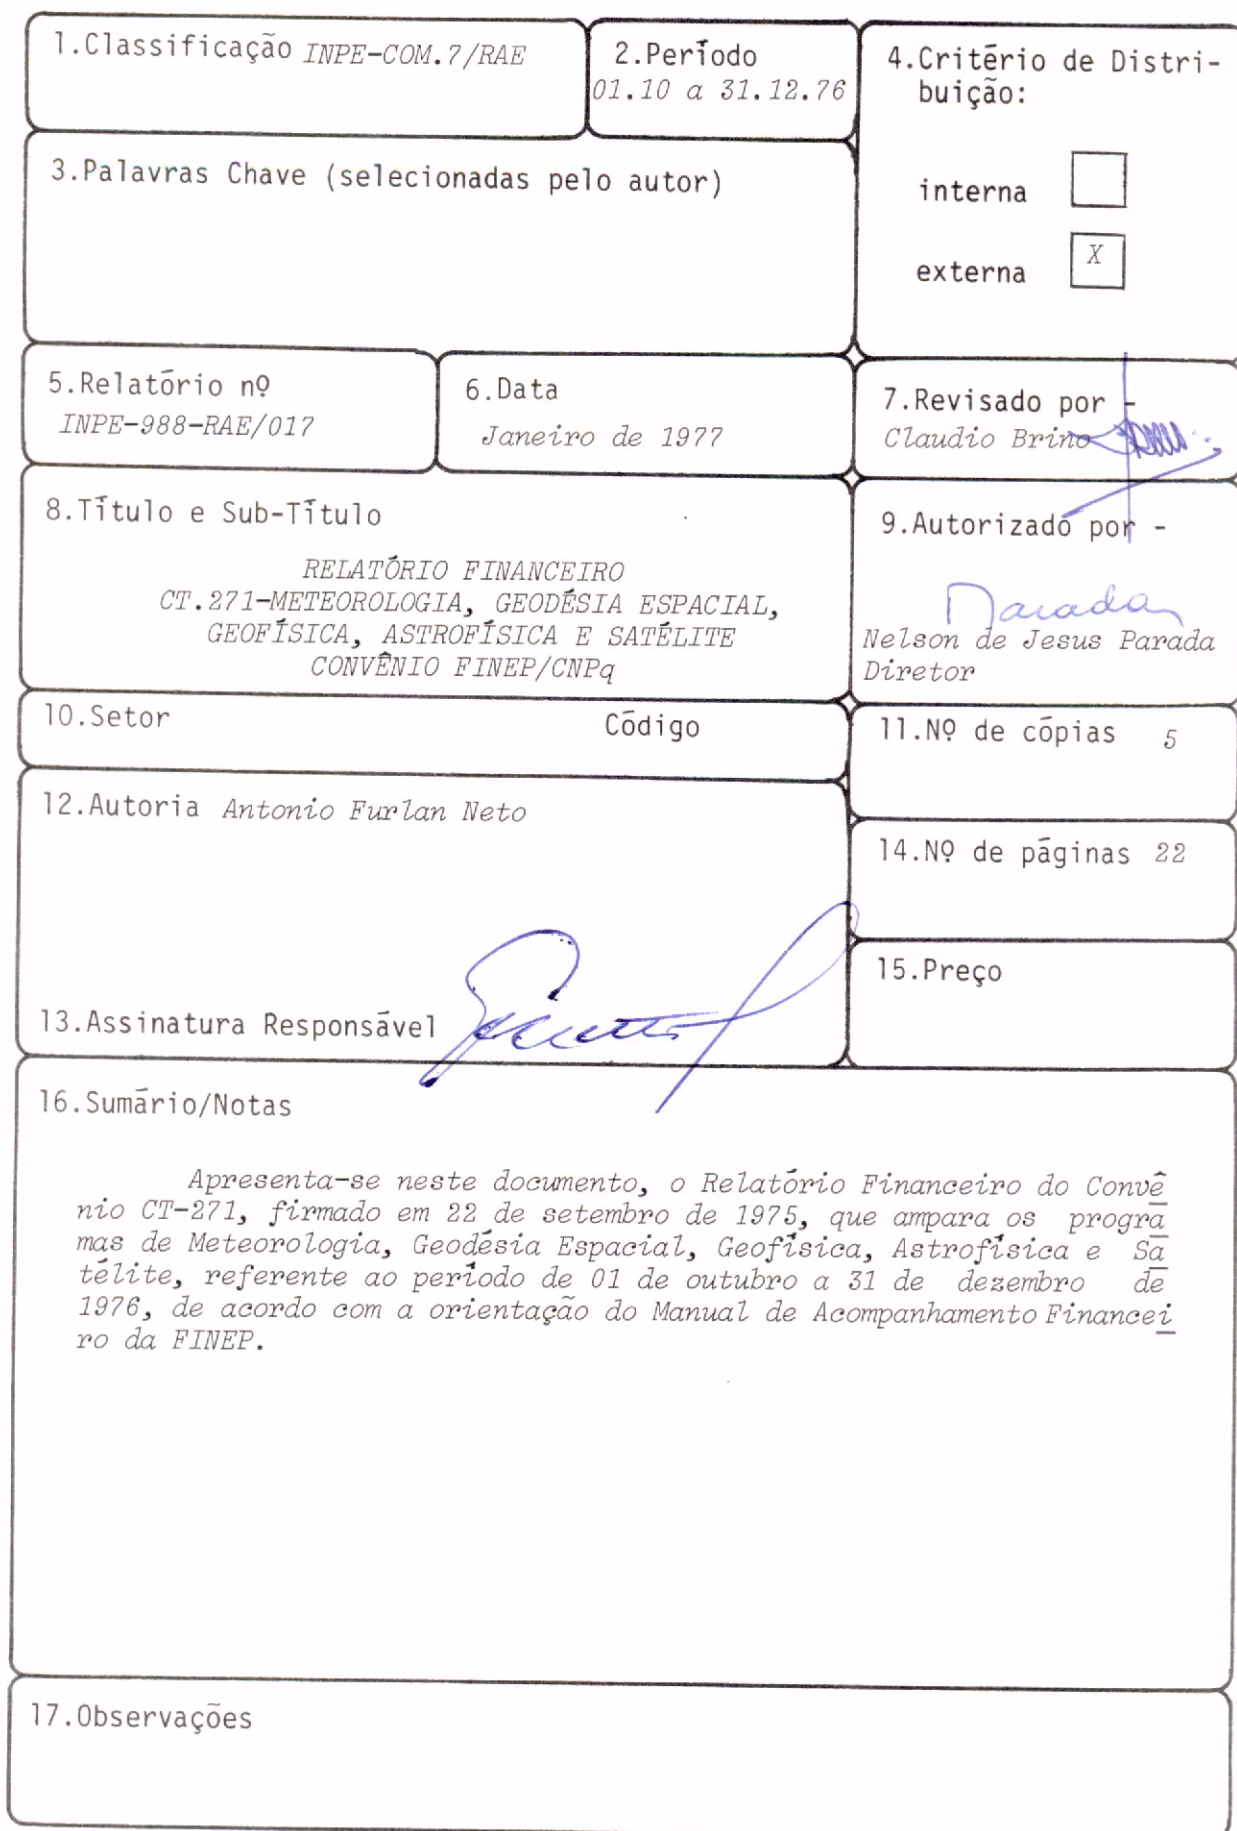 1.Classificação INPE-COM.7/RAE
2.Período
01.10 a 31.12.76
4.Critério de Distri-
buição:
interna
externa X
3.Palavras Chave (selecionadas pelo autor)
5.Relatório nº
INPE-988-RAE/017
6.Data
Janeiro de 1977
7.Revisado por -
Claudio Brino
8.Título e Sub-Título
RELATÓRIO FINANCEIRO
CT.271-METEOROLOGIA, GEODÉSIA ESPACIAL,
GEOFÍSICA, ASTROFÍSICA E SATÉLITE
CONVÊNIO FINEP/CNPq
9.Autorizado por -
Parada
Nelson de Jesus Parada
Diretor
10.Setor Código
11.Nº de cópias 5
12.Autoria Antonio Furlan Neto
14.Nº de páginas 22
13.Assinatura Responsável
15.Preço
16.Sumário/Notas
Apresenta-se neste documento, o Relatório Financeiro do Convê
nio CT-271, firmado em 22 de setembro de 1975, que ampara os progra
mas de Meteorologia, Geodésia Espacial, Geofísica, Astrofísica e Sa
télite, referente ao período de 01 de outubro a 31 de dezembro de
1976, de acordo com a orientação do Manual de Acompanhamento Financei
ro da FINEP.
17.Observações